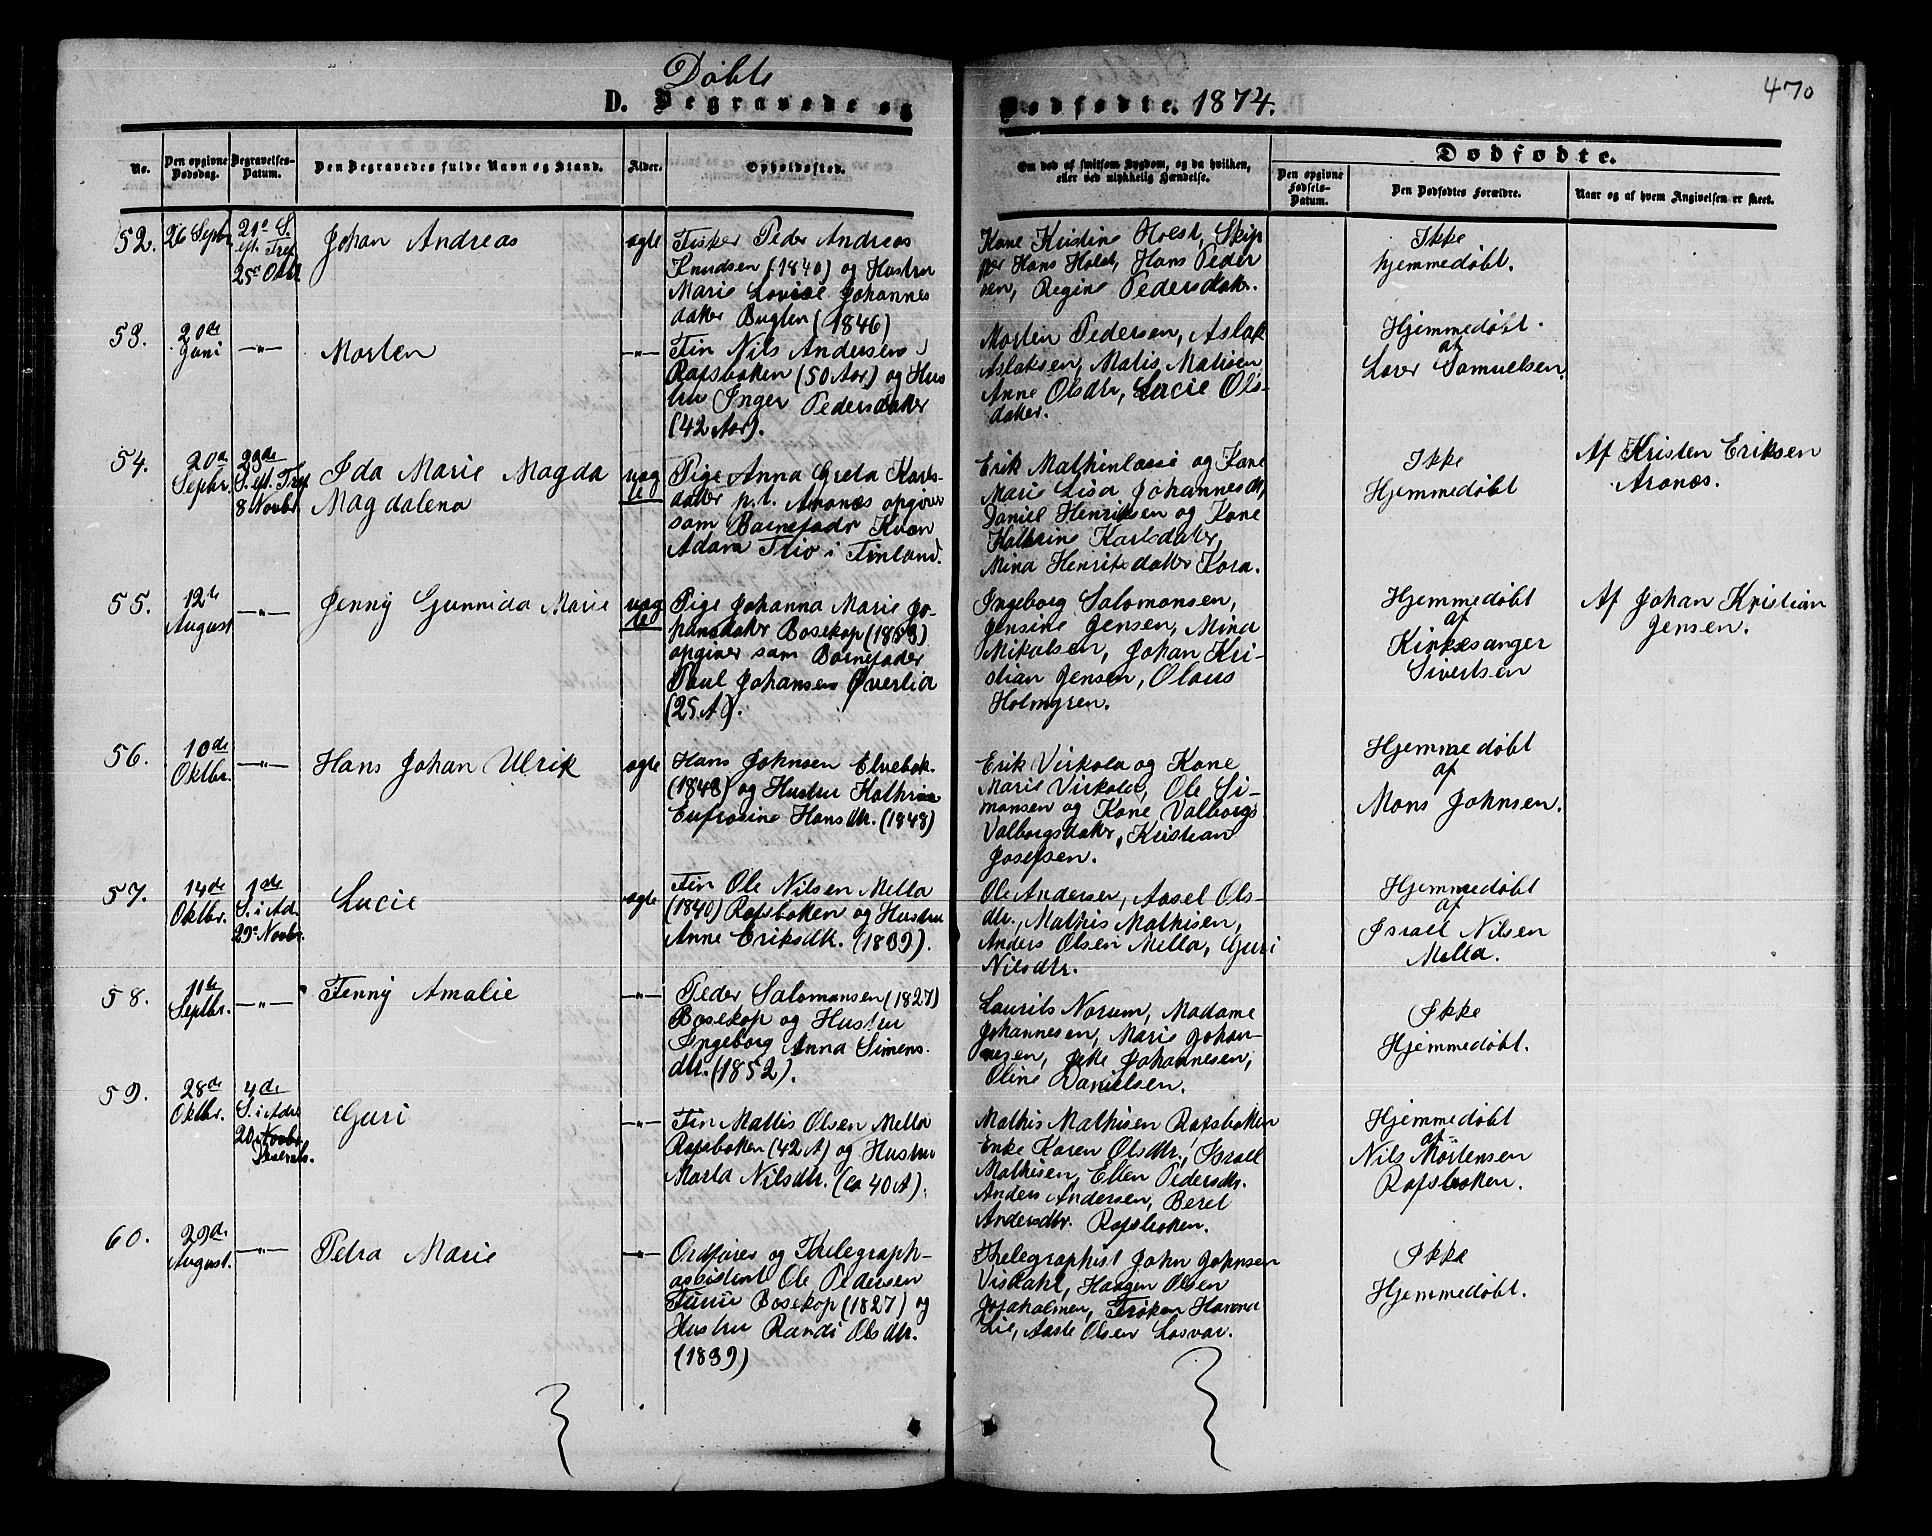 Döbte
D. Begravede og
Dødfødte. 1874.
470
No.
Den opgivne Dødsdag.
Begravelses-Datum.
Den Begravedes fulde Navn og Stand.
Alder.
Opholdssted.
Om død af smitsom Sygdom, og da hvilken,
eller ved ulykkelig Hændelse.
Dødfødte.
Den opgivne Fødsels-Datum.
Den Dødfødtes Forældre.
Naar og af hvem Angivelsen er skeet.
52.
26 Septbr
21e S.
eft. Tref.
25e Oktb
Johan Andreas
ægte
Fisker Peder Andreas
Knudsen (1840) og Hustru
Marie Lovise Johannes
datter Buglen (1846)
Kone Kristine Holst, Skip
per Hans Holst, Hans Peder
sen, Regine Pedersdatter.
Ikke
hjemmedøbt.
53.
20de
Juni
—"—
Morten
—"—
Fin Nils Andersen
Rafsbotten (50 Aar) og Hus
tru Inger Pedersdatter
(42 Aar).
Morten Pedersen, Aslak
Aslaksen, Matis Matisen
Anne Olsdtr, Lucie Ols-
datter.
Hjemmedøbt
af
Laver Samuelsen.
54.
20de
Septbr.
23de
S. eft. Tref
8 Novbr
Ida Marie Magda
Magdalena
uæg
te
Pige Anna Greta Karls-
datter p.t. Aronæs opgiver
som Barnefader Kvæn
Adam Trio i Finland.
Erik Mathinlassi og Kone
Marie Lisa Johannesdtr,
Daniel Henriksen og Kone
Kathrine Karlsdatter,
Mina Henriksdatter Kora.
Ikke
Hjemmedøbt
Af Kristen Eriksen
Aronæs.
55.
12te
August
—"—
Jenny Gunnida Marie
uæg
te
Pige Johanna Marie Jo-
hansdatter Bosekop (1853)
opgiver som Barnefader
Paul Johansen Øverlid
(25 A).
Ingeborg Salomonsen,
Jensine Jensen, Mina
Mikalsen, Johan Kri-
stian Jensen, Olaus
Holmgren.
Hjemmedøbt
af
Kirkesanger
Sivertsen
Af Johan Kristian
Jensen.
56.
10de
Oktbr.
—"—
Hans Johan Ulrik
ægte
Hans Johnsen Elvebak.
(1843) og Hustru Kathrine
Eufrosine Hansdtr. (1848)
Erik Virkola og Kone
Marie Virkola, Ole Si-
monsen og Kone Valborgs
Valborgsdatter, Kristian
Josefsen.
Hjemmedøbt
af
Mons Johnsen.
57.
14de
Oktbr.
1ste
S. i Adv.
29e Novbr.
Lucie
ægte
Fin Ole Nilsen Mella
(1840) Rafsbotten og Hustru
Anne Eriksdtr. (1839).
Ole Andersen, Aasel Ols-
dtr., Mathis Mathisen,
Anders Olsen Mella, Guri
Nilsdtr.
Hjemmedøbt
af
Israel Nilsen
Mella.
58.
11te
Septbr.
—"—
Fenny Amalie
—"—
Peder Salomonsen (1827)
Bosekop og Hustru
Ingeborg Anna Simens-
dtr. (1852).
Laurits Norum, Madame
Johannesen, Marie Johan-
nesen, Johannesen,
Oline Danielsen.
Ikke
Hjemmedøbt.
59.
28de
Oktbr.
4de
S. i Adv
20 Novbr
Decemb.
Guri
—"—
Fin Mattis Olsen Mella
Rafsbotten (42 A) og Hustru
Marta Nilsdtr. (ca 40 A).
Mathis Mathisen Rafsbotten
Enke Karen Olsdtr., Israel
Mathisen, Ellen Pedersdtr.
Anders Andersen, Beret
Andersdtr. Rafsbotten.
Hjemmedøbt
af
Nils Mortensen
Rafsbotten.
60.
29de
August.
—"—
Petra Marie
—"—
Ordfører og Thelegraph-
assistent Ole Pedersen
Bosekop (1827) og
Hustru Randi Olsdtr.
(1839)
Thelegraphist John Johnsen
Visdahl, Haagen Olsen
Jøraholmen, Frøken Hanna
Lie, Aaste Olsen Losvar.
Ikke
Hjemmedøbt.